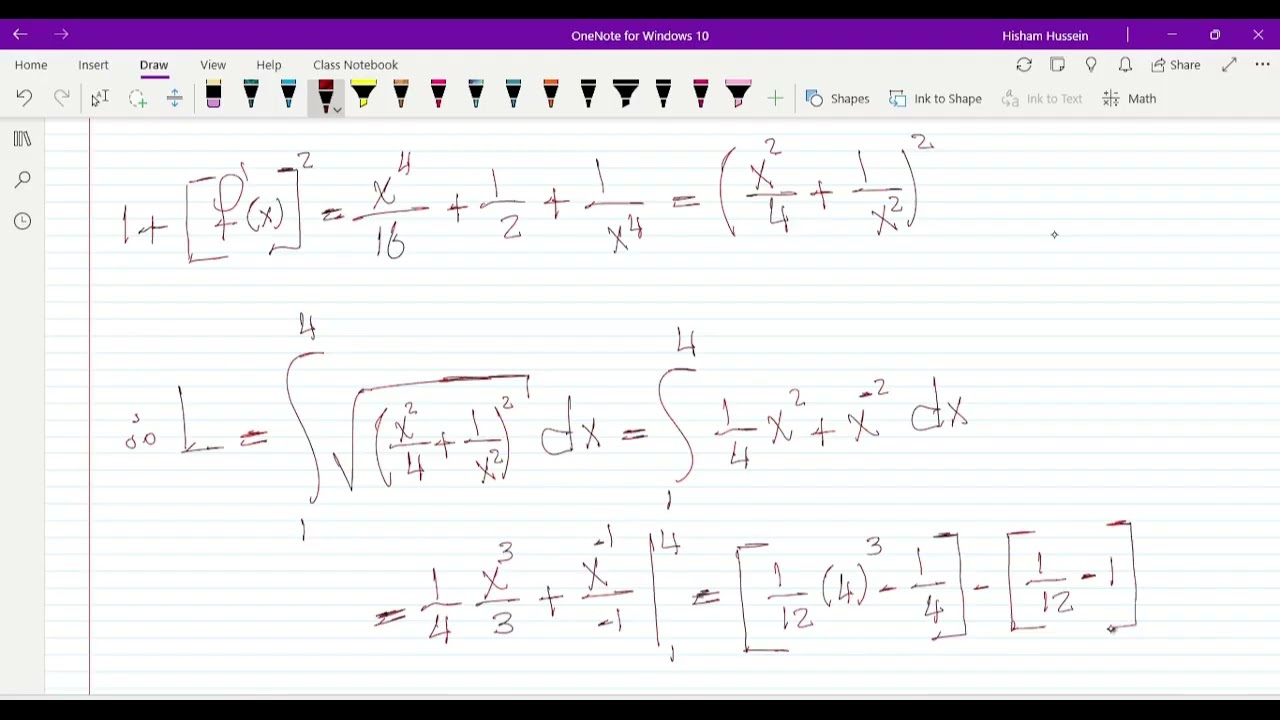 OneNote for Windows 10
Hisham Hussein
Home Insert Draw View Help Class Notebook Share
Shapes Ink to Shape Ink to Text Math
1 + [f'(x)]² = x⁴/16 + 1/2 + 1/x⁴ = (x²/4 + 1/x²)²
∴ L = ∫₁⁴ √(x²/4 + 1/x²)² dx = ∫₁⁴ 1/4 x² + x⁻² dx
= 1/4 x³/3 + x⁻¹/-1 |₁⁴ = [1/12 (4)³ - 1/4] - [1/12 - 1]